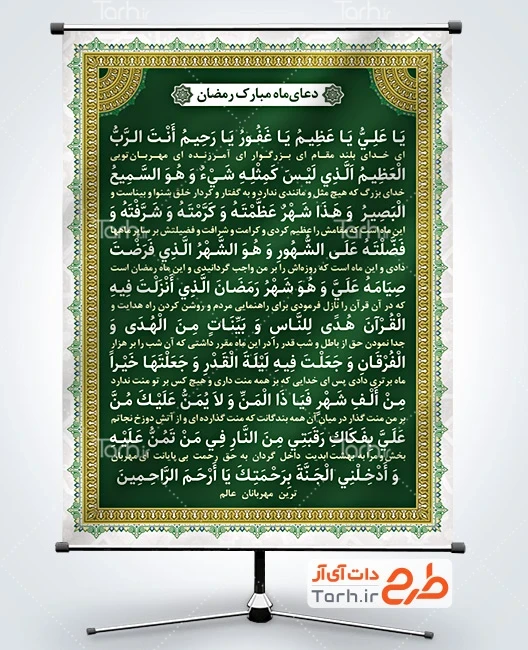 دعای ماه مبارک رمضان
یَا عَلِیُّ یَا عَظِیمُ یَا غَفُورُ یَا رَحِیمُ أَنْتَ الرَّبُّ
ای خدای بلند مقام ای بزرگوار ای آمرزنده ای مهربان تویی
الْعَظِیمُ الَّذِی لَیْسَ کَمِثْلِهِ شَیْءٌ وَ هُوَ السَّمِیعُ
خدای بزرگ که هیچ مثل و مانندی ندارد و به گفتار و کردار خلق شنوا و بیناست و
الْبَصِیرُ وَ هَذَا شَهْرٌ عَظَّمْتَهُ وَ کَرَّمْتَهُ وَ شَرَّفْتَهُ وَ
این ماه را مقامش را عظیم کردی و کرامت و شرافت و فضیلتش بر سایر ماهها
فَضَّلْتَهُ عَلَی الشُّهُورِ وَ هُوَ الشَّهْرُ الَّذِی فَرَضْتَ
دادی و این ماه است که روزه‌اش را بر من واجب گردانیدی و این ماه رمضان است
صِیَامَهُ عَلَیَّ وَ هُوَ شَهْرُ رَمَضَانَ الَّذِی أَنْزَلْتَ فِیهِ
که در آن قرآن را نازل فرمودی برای راهنمایی مردم و روشن کردن راه هدایت و
الْقُرْآنَ هُدًی لِلنَّاسِ وَ بَیِّنَاتٍ مِنَ الْهُدَی وَ
جدا نمودن حق از باطل و شب قدر را در این ماه مقرر داشتی که آن شب را بر هزار
الْفُرْقَانِ وَ جَعَلْتَ فِیهِ لَیْلَةَ الْقَدْرِ وَ جَعَلْتَهَا خَیْراً
ماه برتری دادی پس ای خدایی که بر همه منت داری و هیچ کس بر تو منت ندارد
مِنْ أَلْفِ شَهْرٍ فَیَا ذَا الْمَنِّ وَ لاَ یُمَنُّ عَلَیْکَ مُنَّ
بر من منت گذار در میان آن همه بندگانت که منت گذارده ای و از آتش دوزخ نجاتم
عَلَیَّ بِفَکَاکِ رَقَبَتِی مِنَ النَّارِ فِی مَنْ تَمُنُّ عَلَیْهِ
بخش و مرا به بهشت ابدیت داخل گردان به حق رحمت بی پایانت ای مهربان
وَ أَدْخِلْنِی الْجَنَّةَ بِرَحْمَتِکَ یَا أَرْحَمَ الرَّاحِمِینَ
ترین مهربانان عالم
طرح دات آی‌آر
Tarh.ir